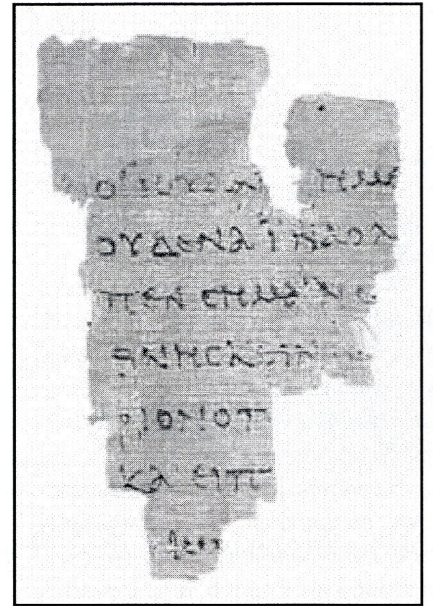 ΟΙΙΟΥΔΑΙ ΗΜΕ
ΟΥΔΕΝΑΪΝΑΟΛ
ΠΕΝCΗΜΑΙΝω
ΘΝΗCΚΕΙΝ
ΡΙΟΝΟΠ
ΚΑΙΕΙΠ